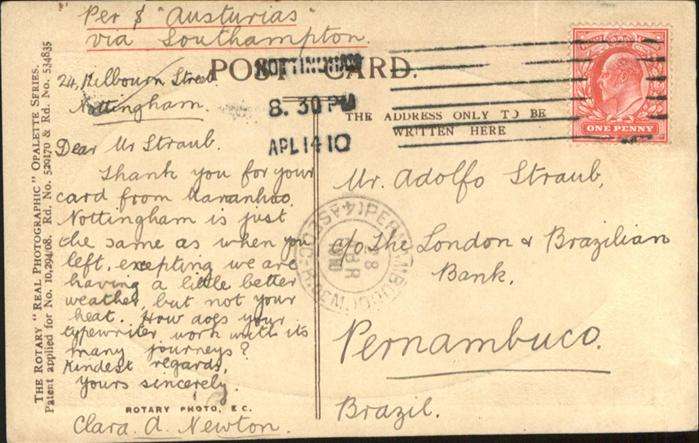 Per S "Austurias"
via Southampton
POST CARD.
24, Milbourn Street
Nottingham.
NOTTINGHAM
8. 30 PM
APL 14 10
THE ADDRESS ONLY TO BE
WRITTEN HERE
ONE PENNY
Dear Mr Straub.
Thank you for your
card from Maranhao.
Nottingham is just
the same as when you
left, excepting we are
having a little better
weather, but not your
heat. How does your
typewriter work with its
many journeys?
Kindest regards,
Yours sincerely
Clara. A. Newton.
Mr. Adolfo Straub,
c/o The London & Brazilian
Bank.
Pernambuco.
Brazil.
ROTARY PHOTO, E.C.
THE ROTARY "REAL PHOTOGRAPHIC" OPALETTE SERIES.
Patent applied for No. 10,294/08. Rd. No. 520170 & Rd. No. 534835